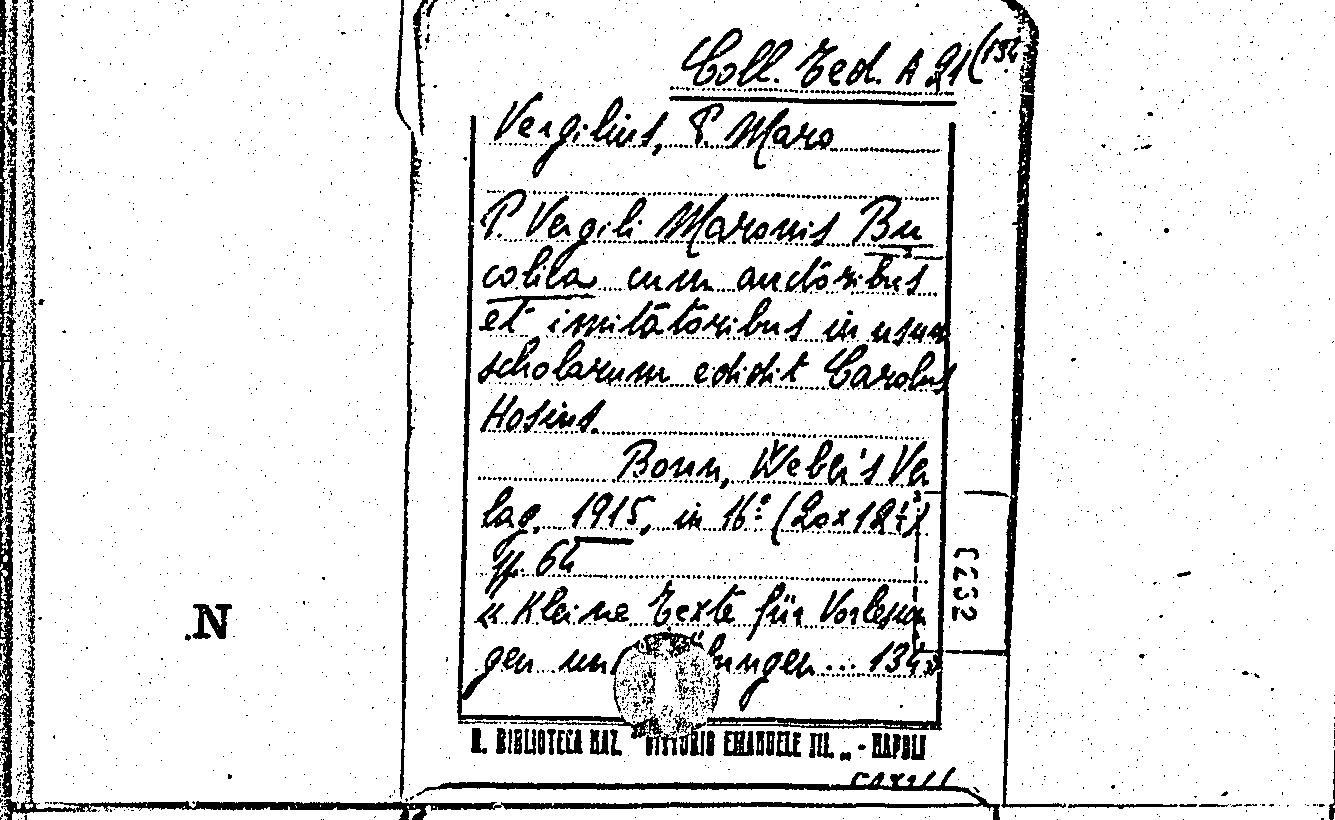 Coll. Ted. A 91 (134
Vergilius, P. Maro
P. Vergili Maronis Bu
colica cum auctōribus
et imitātōribus in usum
scholarum edidit Carolus
Hosius.
Bonn, Weber's Ver
lag, 1915, in 16° (20×12½)
pp. 64
« Kleine Texte für Vorlesun
gen und Übungen... 134»
N
R. BIBLIOTECA NAZ. "VITTORIO EMANUELE III. „ - NAPOLI